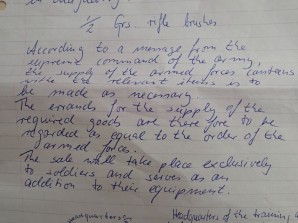 in
1/2 Grs. rifle brushes
According to a message from the
supreme command of the army,
the supply of the armed forces contains
the relevant items is to
be made as necessary
The errands for the supply of the
required goods are therefore to be
regarded as equal to the order of the
armed forces.
The sale will take place exclusively
to soldiers and serves as an
addition to their equipment.
Headquarters of the training